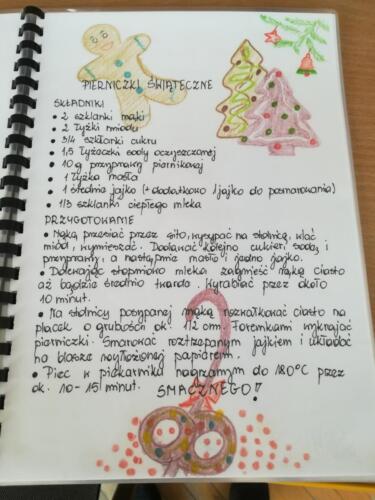 PIERNICZKI ŚWIĄTECZNE
SKŁADNIKI
• 2 szklanki mąki
• 2 łyżki miodu
• 3/4 szklanki cukru
• 1,5 łyżeczki sody oczyszczonej
• 10 g przyprawy piernikowej
• 1 łyżka masła
• 1 średnie jajko (+ dodatkowo 1 jajko do posmarowania)
• 1/3 szklanki ciepłego mleka
PRZYGOTOWANIE
• Mąkę przesiać przez sito, wysypać na stolnicę, wlać
miód, wymieszać. Dodawać kolejno cukier, sodę i
przyprawy, a następnie masło i jedno jajko.
• Dolewając stopniowo mleka zagnieść ręką ciasto
aż będzie średnio twarde. Wyrabiać przez około
10 minut.
• Na stolnicy posypanej mąką rozwałkować ciasto na
placek o grubości ok. 1/2 cm. Foremkami wykrajać
pierniczki. Smarować roztrzepanym jajkiem i układać
na blaszce wyłożonej papierem.
• Piec w piekarniku nagrzanym do 180°C przez
ok. 10-15 minut. SMACZNEGO!